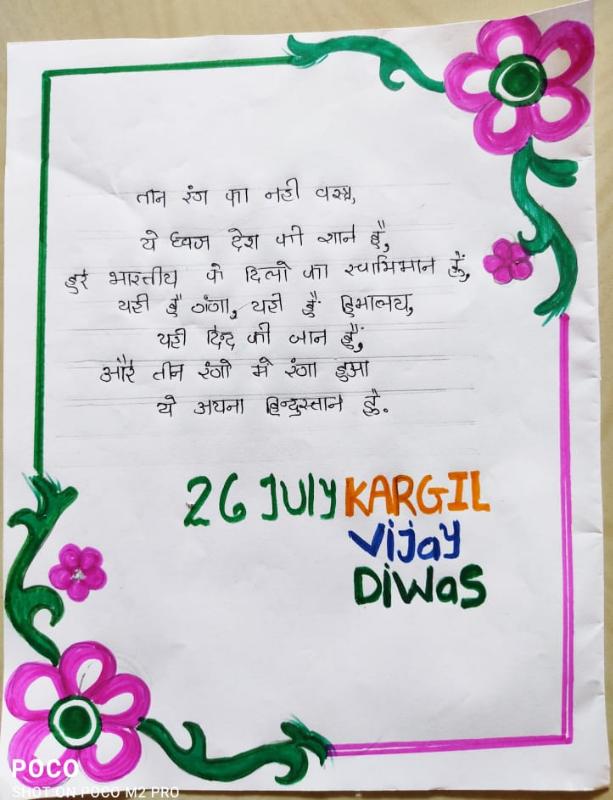 तीन रंग का नही वस्त्र,
ये ध्वज देश की शान है,
हर भारतीय के दिलो का स्वाभिमान हैं,
यही है गंगा, यही हैं हिमालय,
यही हिन्द की जान हैं,
और तीन रंगो मे रंगा हुआ
ये अपना हिन्दुस्तान है.
26 JULY KARGIL
Vijay
DiWaS
POCO
SHOT ON POCO M2 PRO